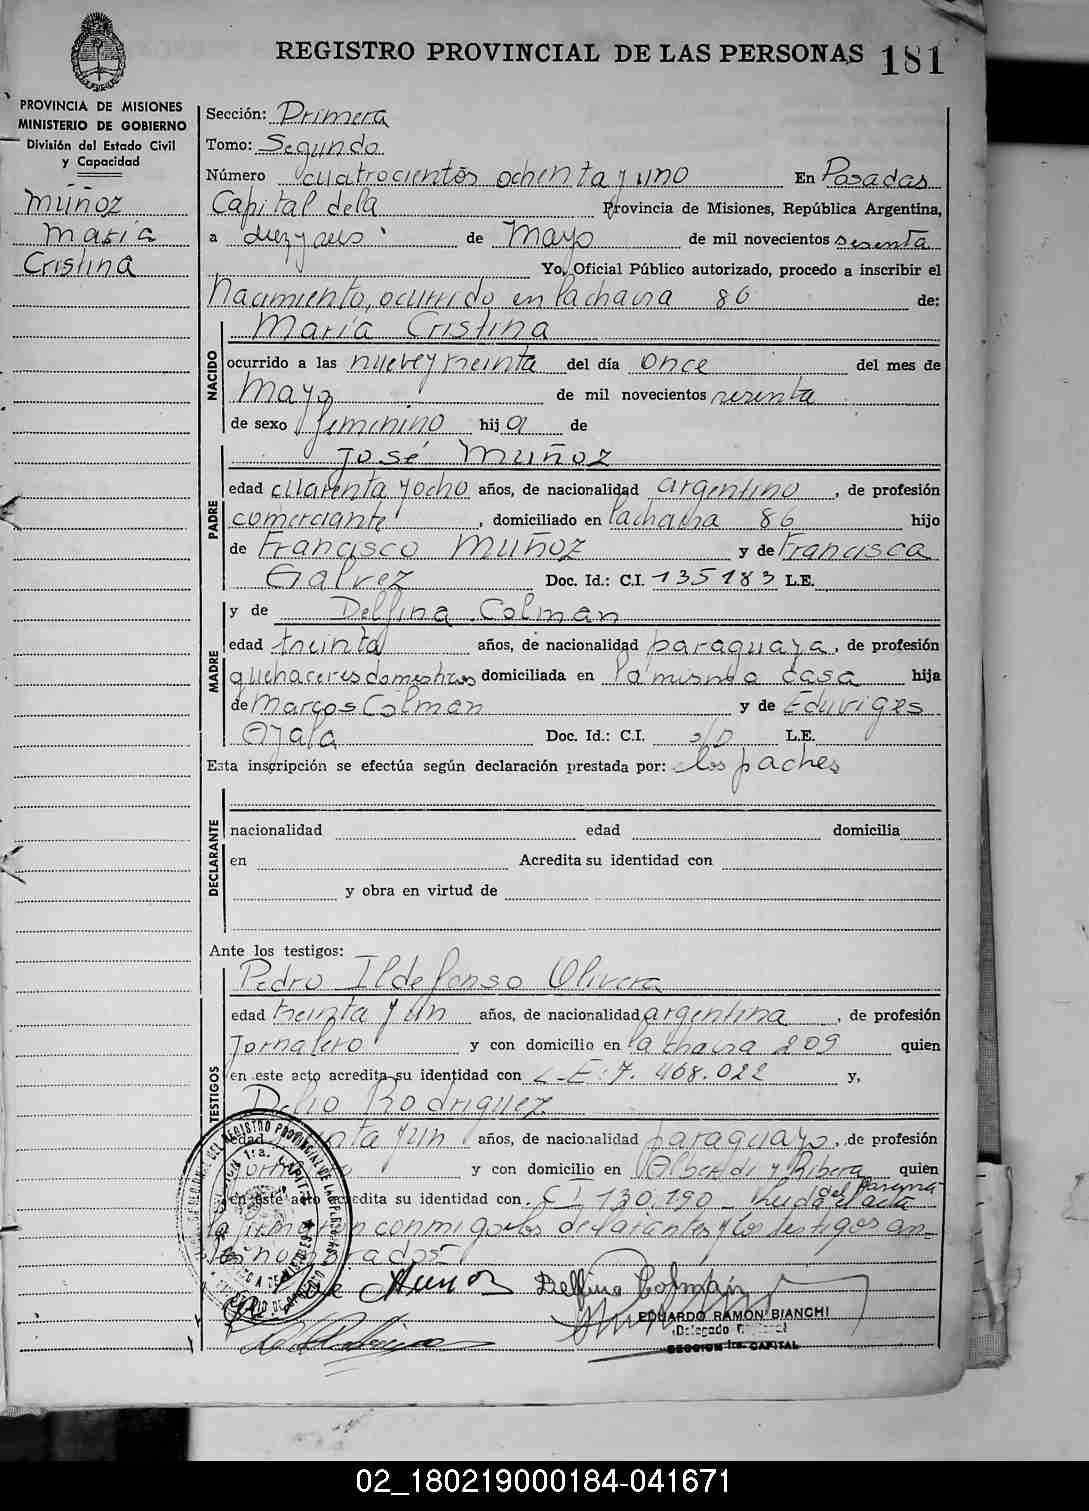 REGISTRO PROVINCIAL DE LAS PERSONAS 181
PROVINCIA DE MISIONES
MINISTERIO DE GOBIERNO
División del Estado Civil
y Capacidad
Muñoz
Maria
Cristina
Sección: Primera
Tomo: Segundo
Número cuatrocientos ochenta y uno En Posadas
Capital de la Provincia de Misiones, República Argentina,
a diez y seis de Mayo de mil novecientos sesenta
Yo, Oficial Público autorizado, procedo a inscribir el
Nacimiento, ocurrido en la chacra 86 de:
NACIDO
María Cristina
ocurrido a las nueve y treinta del día once del mes de
Mayo de mil novecientos sesenta
de sexo femenino hij a de
PADRE
José Muñoz
edad cuarenta y ocho años, de nacionalidad argentino, de profesión
comerciante, domiciliado en la chacra 86 hijo
de Francisco Muñoz y de Francisca
Galvez Doc. Id.: C.I. 135183 L.E.
MADRE
y de Delfina Colman
edad treinta años, de nacionalidad paraguaya, de profesión
quehaceres domesticos domiciliada en la misma casa hija
de Marcos Colman y de Eduviges
Ojala Doc. Id.: C.I. s/D L.E.
Esta inscripción se efectúa según declaración prestada por: los padres
DECLARANTE
nacionalidad edad domicilia
en Acredita su identidad con
y obra en virtud de
Ante los testigos:
TESTIGOS
Pedro Ildefonso Olivera
edad treinta y un años, de nacionalidad argentina, de profesión
Jornalero y con domicilio en la chacra 209 quien
en este acto acredita su identidad con L.E. 7.468.022 y,
Delio Rodriguez
edad y un años, de nacionalidad paraguayo, de profesión
y con domicilio en Alberdi y Ribera quien
del Paraná
en este acto acredita su identidad con C I 130.190 - Leida el acta
la firmaron conmigo los declarantes y los testigos an-
nombrados
Muñoz Delfina Colmán
EDUARDO RAMON BIANCHI
Delegado
SECCION 1ra. CAPITAL
02_180219000184-041671